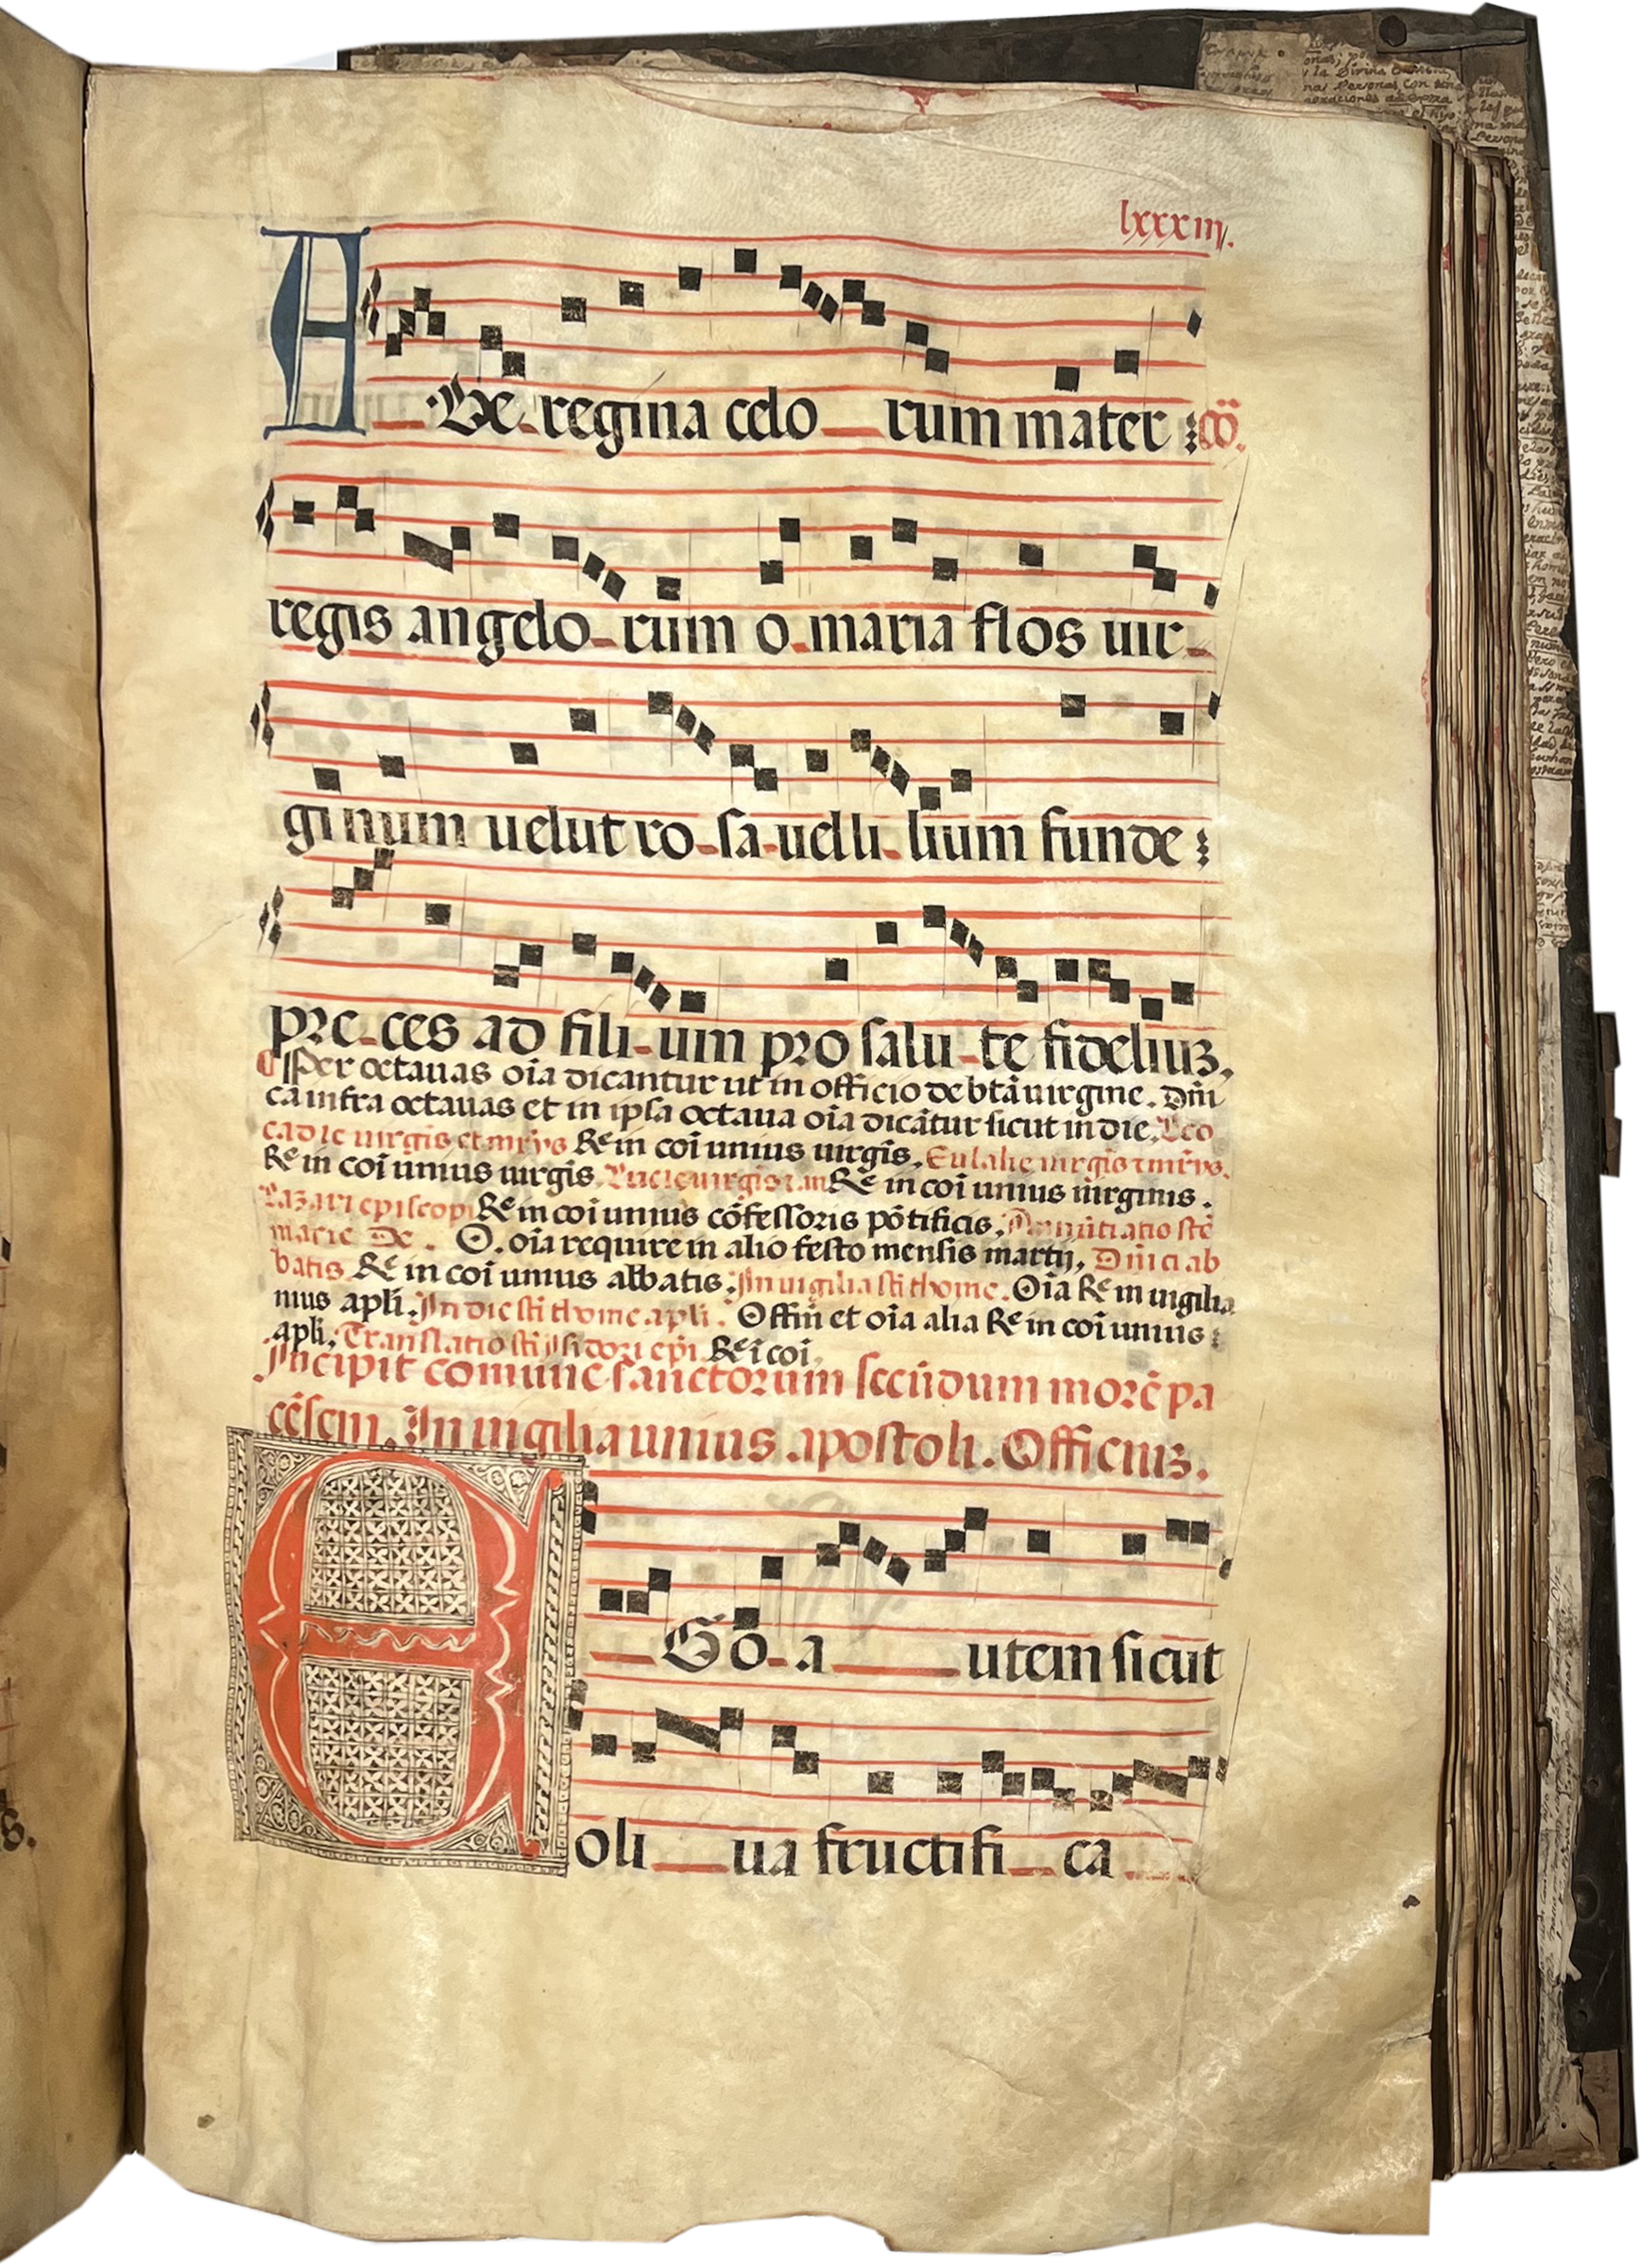 lxxxiij.
A Ve regina celo rum mater cõ.
regis angelo rum o maria flos uir
ginum uelut ro sa uel li lium funde
pre ces ad fili um pro salu te fideliuz.
Per octauas oīa dicantur ut in officio de btā uirgine. Dñi
ca infra octauas et in ipsa octaua oīa dicātur sicut in die. Leo
cadie uirgīs et mr̄ys Re in coī unius uirgīs. Eulalie uirgīs
Re in coī unius uirgīs. Lucie uirgīs Re in coī unius uirginis.
Lazari episcopi Re in coī unius cōfessoris pōtificis. Annūtiatio stē
marie De . O. oīa require in alio festo mensis martij. Dñici ab
batis Re in coī unius abbatis. In uigilia sti thome. Oīa Re in uigilia
nius apli. In die sti thome apli. Offm et oīa alia Re in coī unius
apli. Translatio sti Isidori epi Re ī coī
Incipit comune sanctorum secūdum morē pa
cēsem. In uigilia unius apostoli. Officiuz.
E Go a utem sicut
oli ua fructifi ca